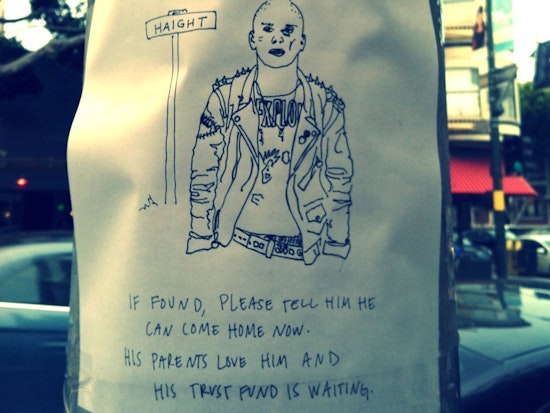 HAIGHT
EXPLOI
IF FOUND, PLEASE TELL HIM HE
CAN COME HOME NOW.
HIS PARENTS LOVE HIM AND
HIS TRUST FUND IS WAITING.